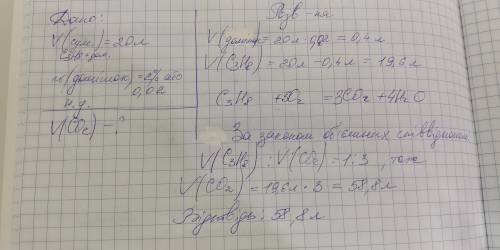 Дано:
V(сум.) = 20л
C3H8+дом.
(домішок) = 2% або
0,02
н.у.
V(CO2) - ?
Розв-ня
V(домішок) = 20л · 0,02 = 0,4л
V(C3H8) = 20л - 0,4л = 19,6л
C3H8 + 5O2 = 3CO2 + 4H2O
За законом об'ємних співвідношень
V(C3H8) : V(CO2) = 1:3, тоді
V(CO2) = 19,6л · 3 = 58,8л
Відповідь: 58,8л